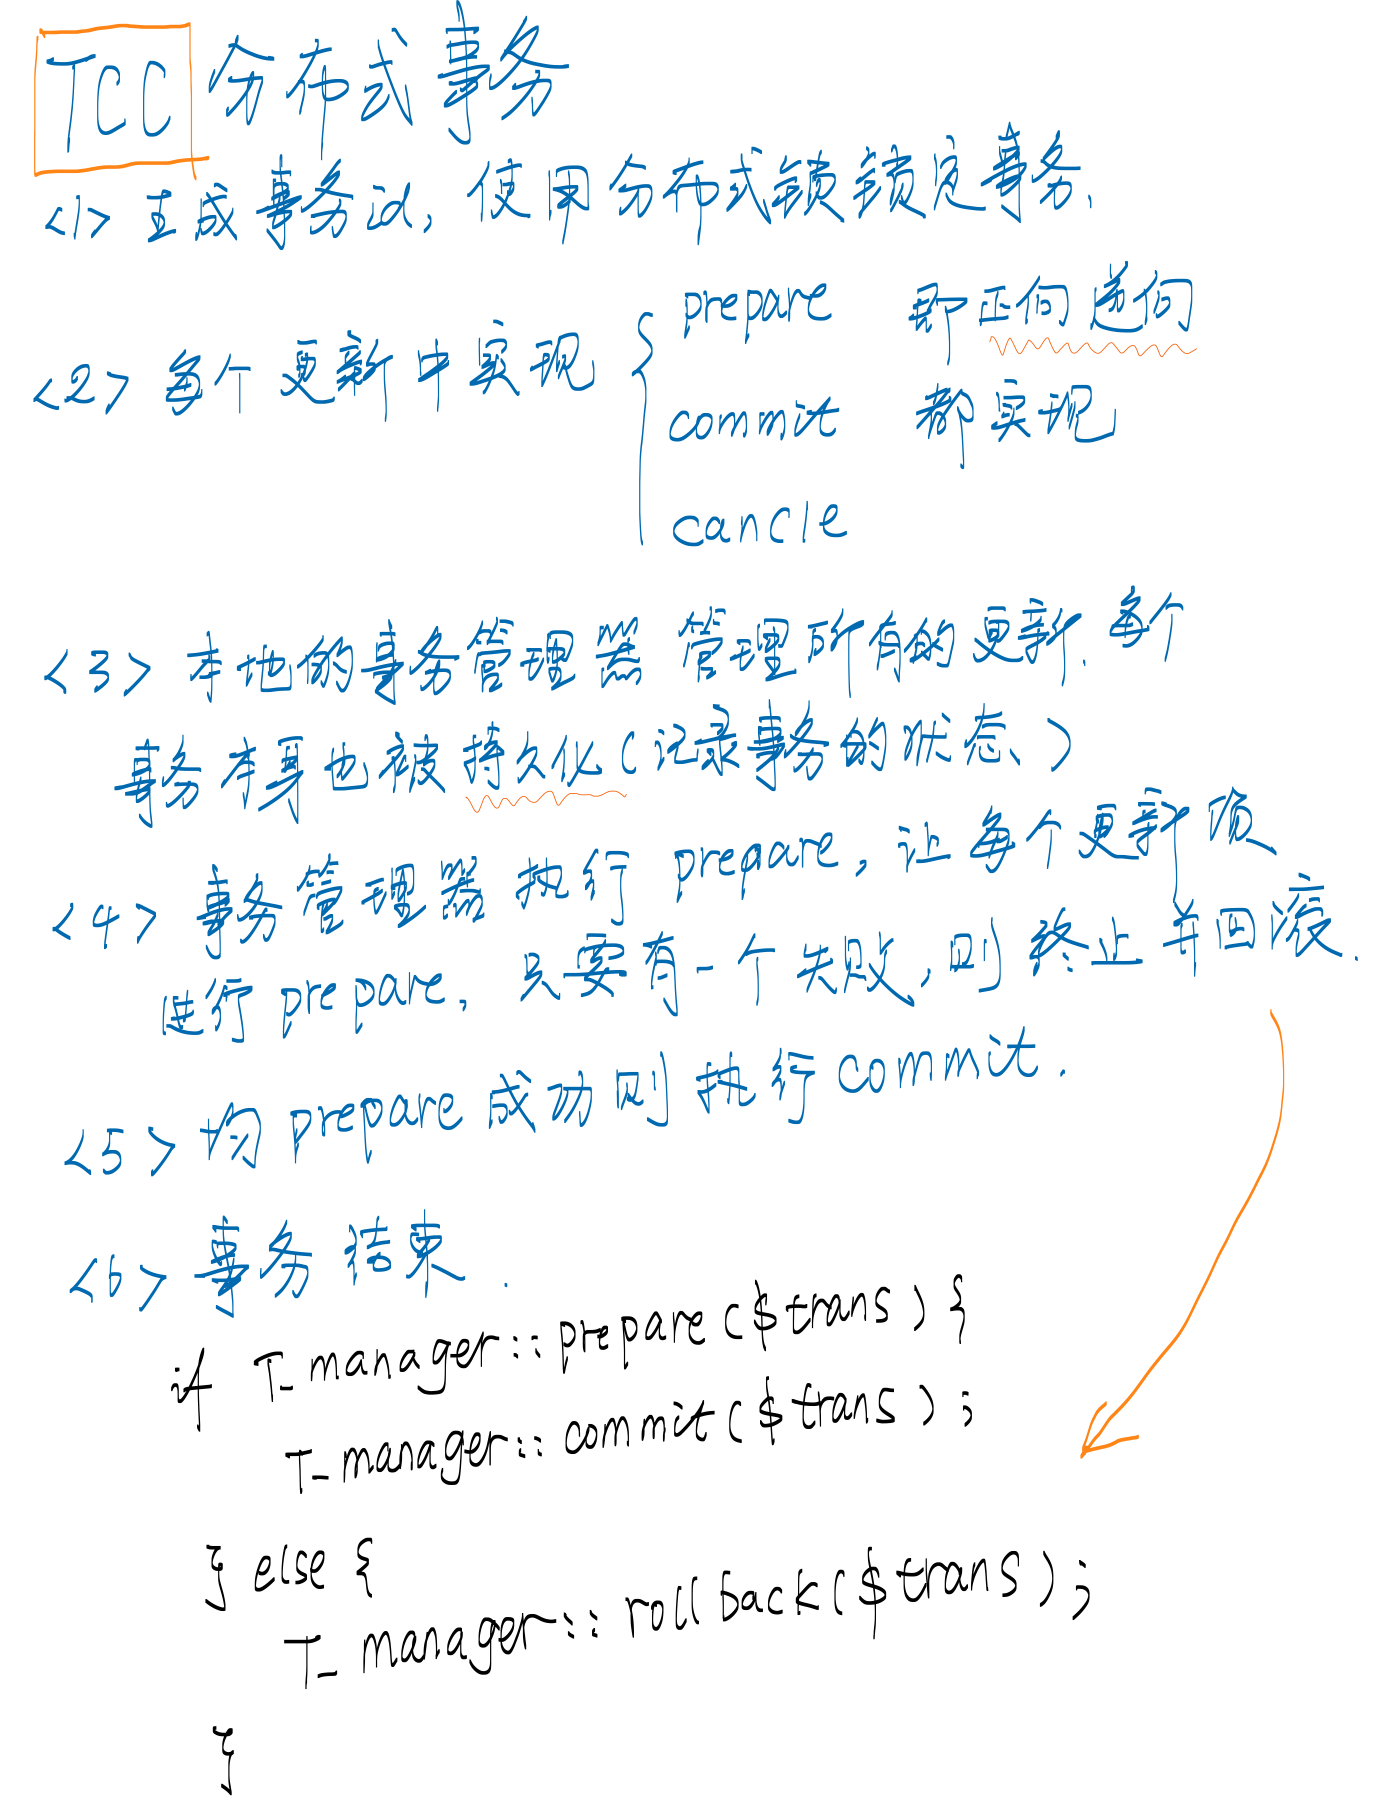 TCC 分布式事务
<1> 生成事务id, 使用分布式锁锁定事务.
prepare 即正向逆向
<2> 每个更新中实现 {
commit 都实现
cancle
<3> 本地的事务管理器 管理所有的更新. 每个
事务本身也被持久化(记录事务的状态、)
<4> 事务管理器执行 prepare, 让每个更新项
进行prepare, 只要有一个失败, 则终止并回滚.
<5> 均prepare成功则执行commit.
<6> 事务结束.
if T_manager::prepare($trans) {
T_manager::commit($trans);
} else {
T_manager::rollback($trans);
}